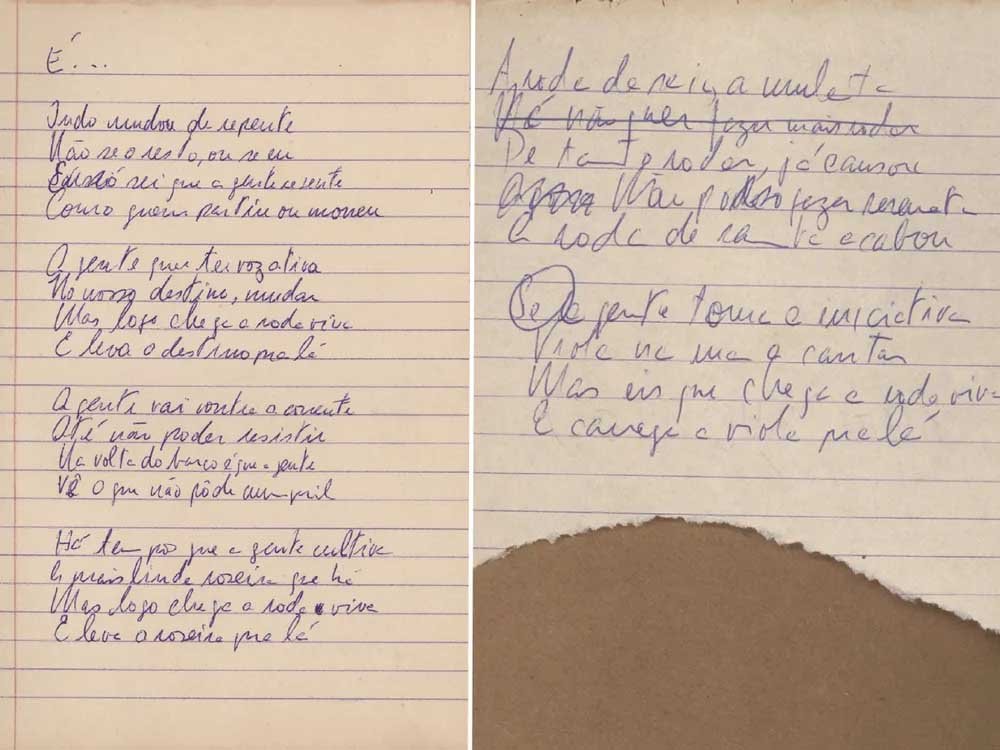 É...
Tudo mudou de repente
Não sei o resto, ou se eu
Eu só sei que a gente sente
Como quem partiu ou morreu
A gente quer ter voz ativa
No nosso destino, mudar
Mas logo chega a roda viva
E leva o destino pra lá
A gente vai contra a corrente
Até não poder resistir
Na volta do barco é que a gente
Vê o que não pôde cumpril
Há tempo que a gente cultiva
A mais linda roseira que há
Mas logo chega a roda viva
E leva a roseira pra lá
A roda de saia, a mulata
Já não quer fazer mais rodar
De tanto rodar, já cansou
Não posso fazer serenata
A roda de samba acabou
Se a gente toma a iniciativa
Viola na mão a cantar
Mas eis que chega a roda viva
E carrega a viola pra lá